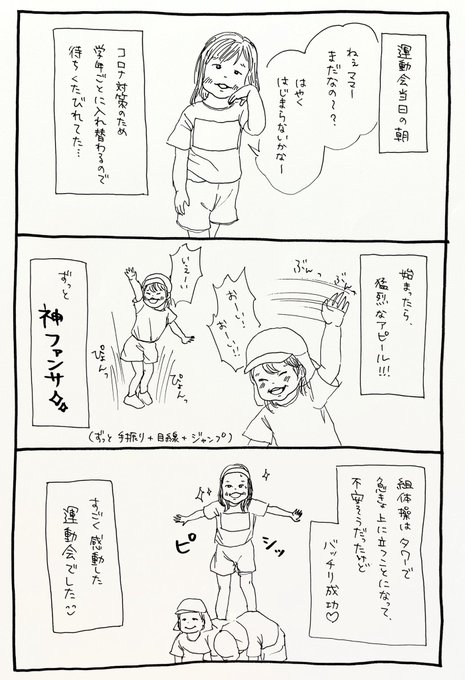 運動会当日の朝
ねぇママー
まだなの〜？？
はやく
はじまらないかなー
コロナ対策のため
学年ごとに入れ替わるので
待ちくたびれてた…
始まったら、
猛烈なアピール!!!
ぶんっ
ぶんっ
おーい！
おーい!!
いぇーい
ぴょんっ
ぴょんっ
ずっと
神ファンサ
(ずっと手振り+目線+ジャンプ)
組体操はタワーで
急きょ上に立つことになって、
不安そうだったけど
バッチリ成功♡
ピシッ
すごく感動した
運動会でした